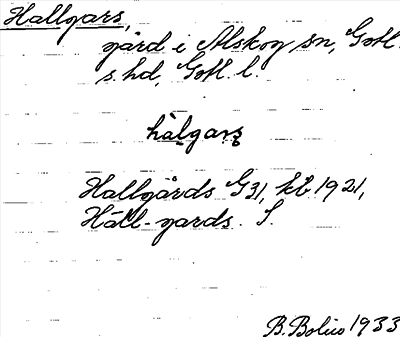 Hallgars,
gård i Alskog sn, Gotl.
s. hd, Gotl. l.
hàlgarʒ
Hallgårds G31, kb 1921,
Häll-gards. S.
B. Bolin 1933